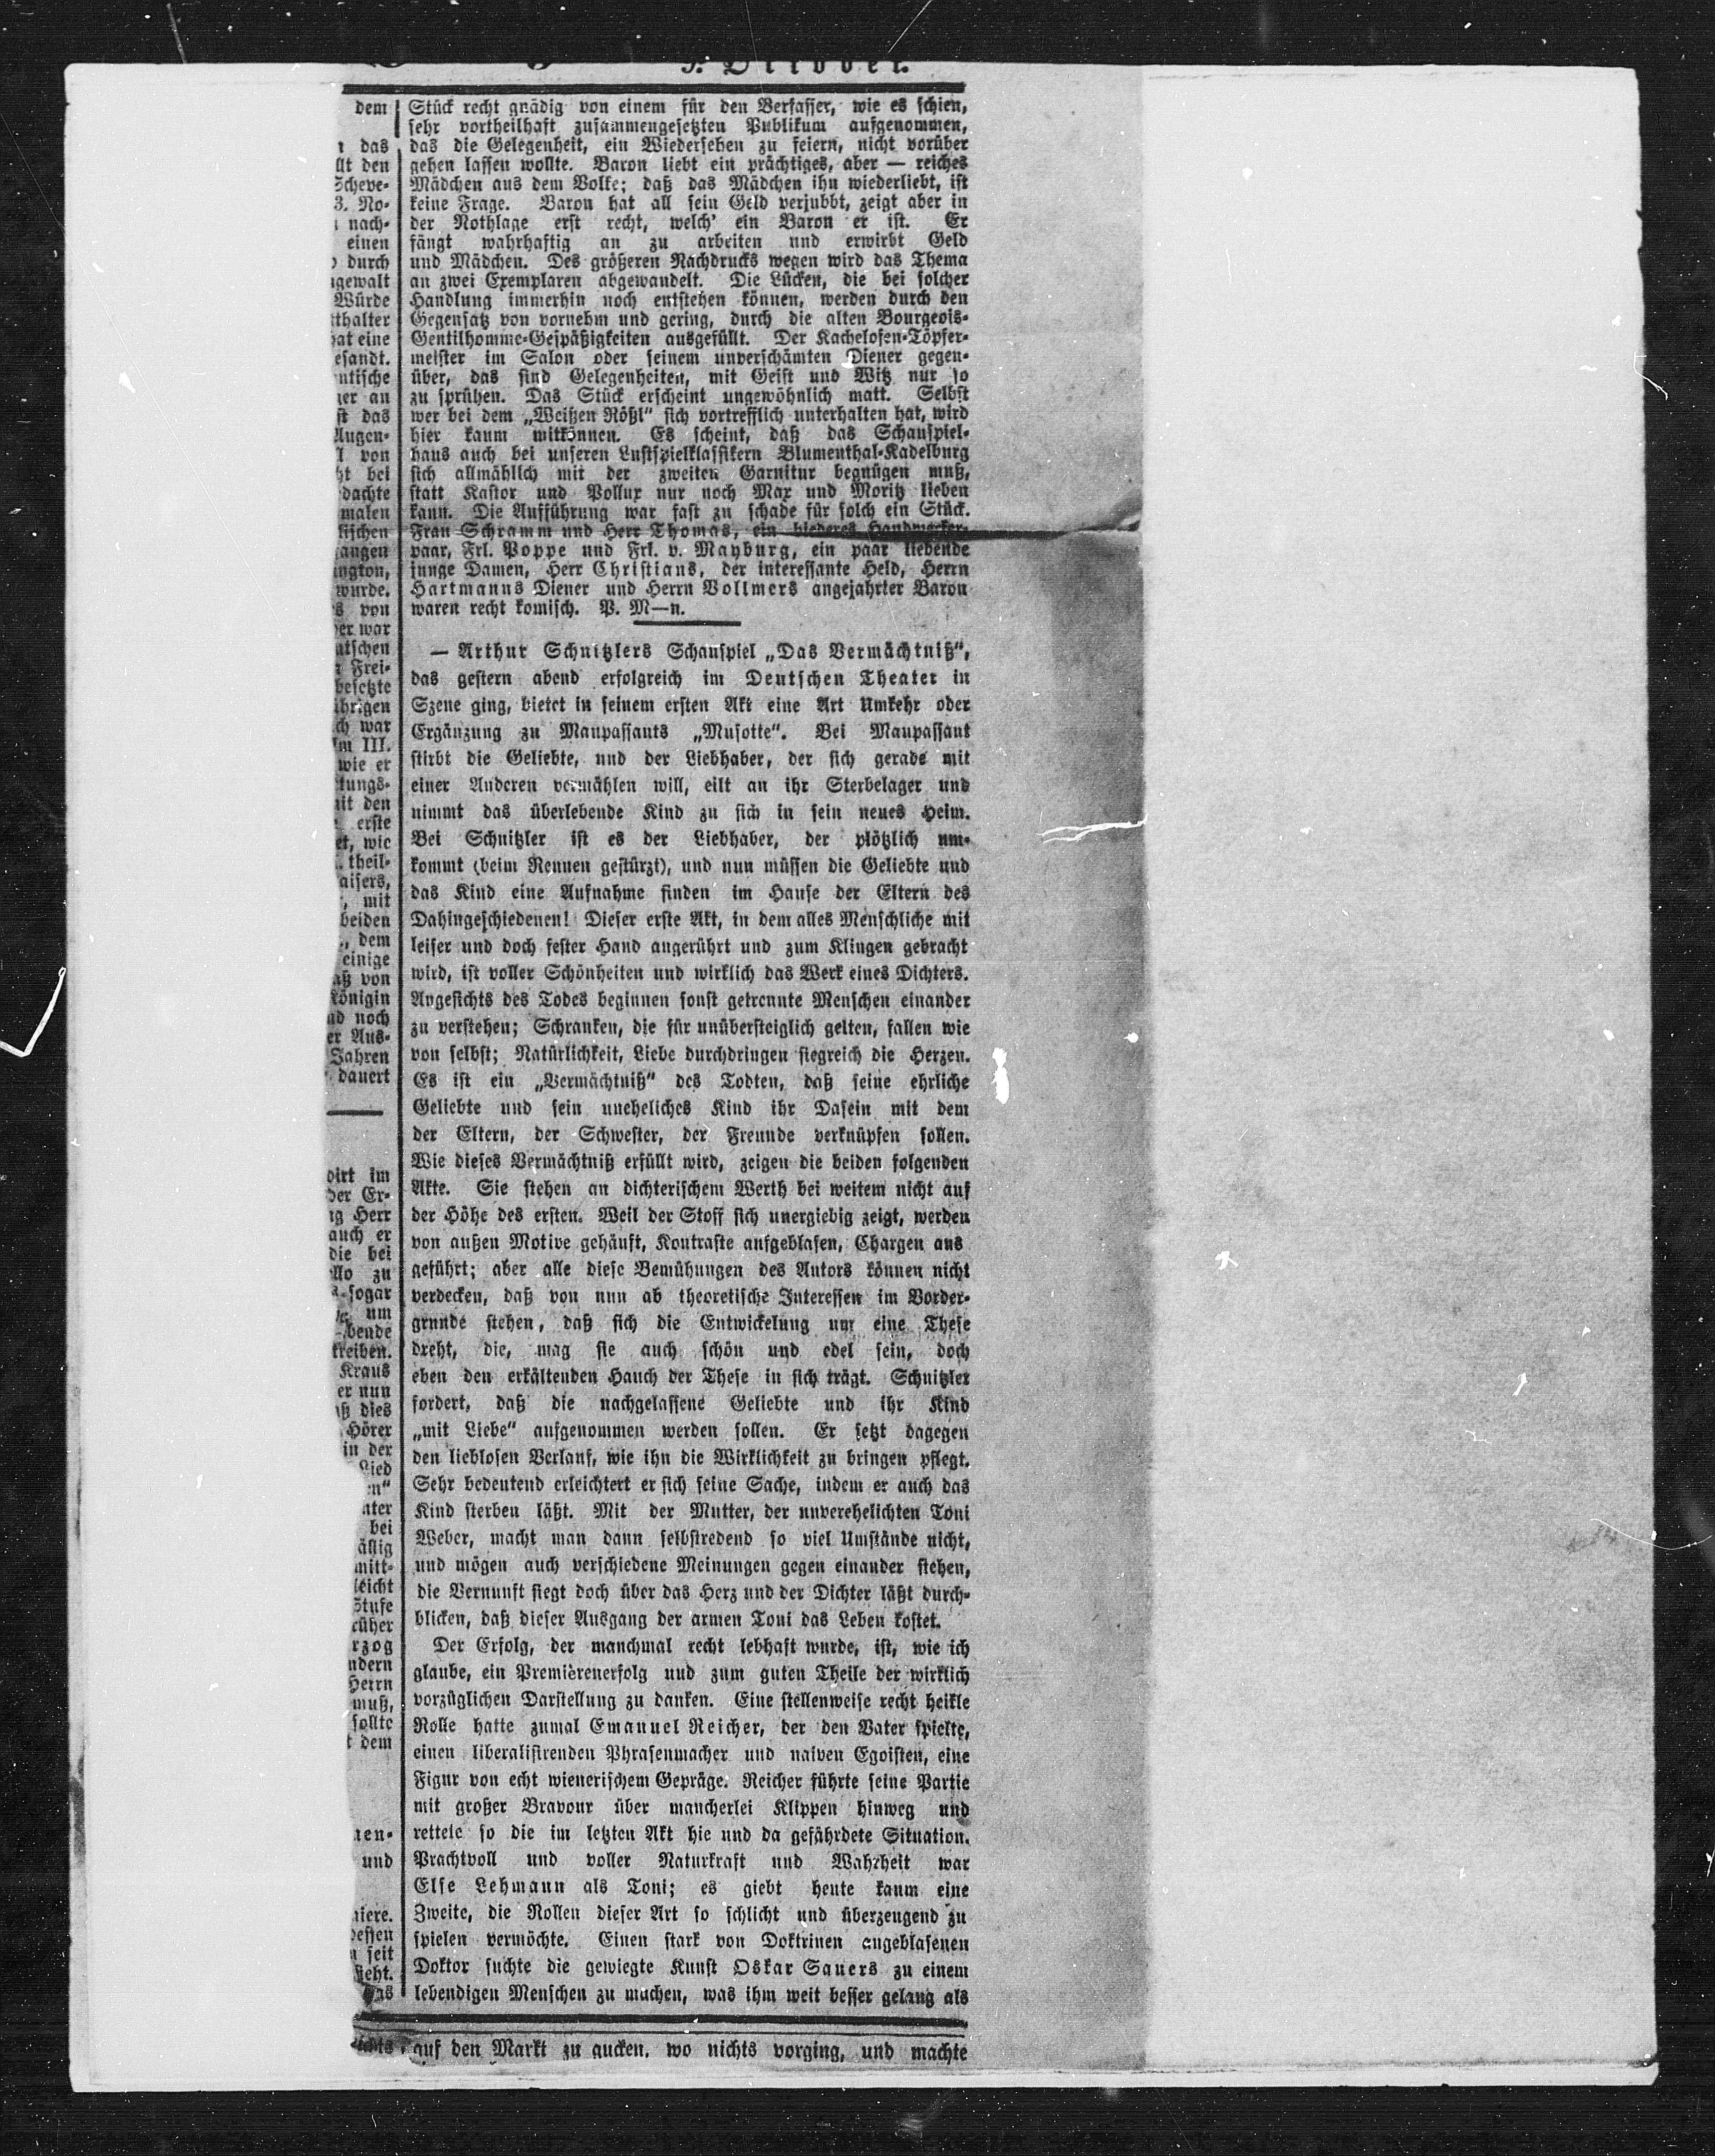 Oktober.
dem
das
den
Scheve-
3. No-
nach-
einen
durch
gewalt
Würde
thalter
hat eine
esandt.
ntische
er an
das
Augen-
von
bei
dachte
malen
lischen
angen
ington,
wurde.
von
er war
utschen
Frei-
besetzte
ihrigen
ch war
III.
wie er
tungs-
mit den
erste
et, wie
theil-
aisers,
mit
beiden
dem
einige
aß von
Königin
nd noch
er Aus-
Jahren
dauert
dirt im
der Er-
ng Herr
auch er
die bei
llo zu
sogar
um
bende
treiben.
Kraus
er nun
aß dies
Hörer
in der
Lied
en“
ater
bei
ällig
mitt-
leicht
Stufe
rüher
rzog
ndern
Herrn
muß,
sollte
dem
nen-
und
niere.
dessen
seit
sieht.
Das
Stück recht gnädig von einem für den Verfasser, wie es schien,
sehr vortheilhaft zusammengesetzten Publikum aufgenommen,
das die Gelegenheit, ein Wiedersehen zu feiern, nicht vorüber
gehen lassen wollte. Baron liebt ein prächtiges, aber — reiches
Mädchen aus dem Volke; daß das Mädchen ihn wiederliebt, ist
keine Frage. Baron hat all sein Geld verjubbt, zeigt aber in
der Nothlage erst recht, welch’ ein Baron er ist. Er
fängt wahrhaftig an zu arbeiten und erwirbt Geld
und Mädchen. Des größeren Nachdrucks wegen wird das Thema
an zwei Exemplaren abgewandelt. Die Lücken, die bei solcher
Handlung immerhin noch entstehen können, werden durch den
Gegensatz von vornehm und gering, durch die alten Bourgeois-
Gentilhomme-Gespäßigkeiten ausgefüllt. Der Kachelofen-Töpfer-
meister im Salon oder seinem unverschämten Diener gegen-
über, das sind Gelegenheiten, mit Geist und Witz nur so
zu sprühen. Das Stück erscheint ungewöhnlich matt. Selbst
wer bei dem „Weißen Rößl“ sich vortrefflich unterhalten hat, wird
hier kaum mitkönnen. Es scheint, daß das Schauspiel-
haus auch bei unseren Lustspielklassikern Blumenthal-Kadelburg
sich allmählich mit der zweiten Garnitur begnügen muß,
statt Kastor und Pollux nur noch Max und Moritz lieben
kann. Die Aufführung war fast zu schade für solch ein Stück.
Frau Schramm und Herr Thomas, ein biederes Handwerker-
paar, Frl. Poppe und Frl. v. Mayburg, ein paar liebende
junge Damen, Herr Christians, der interessante Held, Herrn
Hartmanns Diener und Herrn Vollmers angejahrter Baron
waren recht komisch. P. M—n.
— Arthur Schnitzlers Schauspiel „Das Vermächtniß“,
das gestern abend erfolgreich im Deutschen Theater in
Szene ging, bietet in seinem ersten Akt eine Art Umkehr oder
Ergänzung zu Maupassants „Musotte“. Bei Maupassant
stirbt die Geliebte, und der Liebhaber, der sich gerade mit
einer Anderen vermählen will, eilt an ihr Sterbelager und
nimmt das überlebende Kind zu sich in sein neues Heim.
Bei Schnitzler ist es der Liebhaber, der plötzlich um-
kommt (beim Rennen gestürzt), und nun müssen die Geliebte und
das Kind eine Aufnahme finden im Hause der Eltern des
Dahingeschiedenen! Dieser erste Akt, in dem alles Menschliche mit
leiser und doch fester Hand angerührt und zum Klingen gebracht
wird, ist voller Schönheiten und wirklich das Werk eines Dichters.
Angesichts des Todes beginnen sonst getrennte Menschen einander
zu verstehen; Schranken, die für unübersteiglich gelten, fallen wie
von selbst; Natürlichkeit, Liebe durchdringen siegreich die Herzen.
Es ist ein „Vermächtniß“ des Todten, daß seine ehrliche
Geliebte und sein uneheliches Kind ihr Dasein mit dem
der Eltern, der Schwester, der Freunde verknüpfen sollen.
Wie dieses Vermächtniß erfüllt wird, zeigen die beiden folgenden
Akte. Sie stehen an dichterischem Werth bei weitem nicht auf
der Höhe des ersten. Weil der Stoff sich unergiebig zeigt, werden
von außen Motive gehäuft, Kontraste aufgeblasen, Chargen aus
geführt; aber alle diese Bemühungen des Autors können nicht
verdecken, daß von nun ab theoretische Interessen im Vorder-
grunde stehen, daß sich die Entwickelung um eine These
dreht, die, mag sie auch schön und edel sein, doch
eben den erkältenden Hauch der These in sich trägt. Schnitzler
fordert, daß die nachgelassene Geliebte und ihr Kind
„mit Liebe“ aufgenommen werden sollen. Er setzt dagegen
den lieblosen Verlauf, wie ihn die Wirklichkeit zu bringen pflegt.
Sehr bedeutend erleichtert er sich seine Sache, indem er auch das
Kind sterben läßt. Mit der Mutter, der unverehelichten Toni
Weber, macht man dann selbstredend so viel Umstände nicht,
und mögen auch verschiedene Meinungen gegen einander stehen,
die Vernunft siegt doch über das Herz und der Dichter läßt durch-
blicken, daß dieser Ausgang der armen Toni das Leben kostet.
Der Erfolg, der manchmal recht lebhaft wurde, ist, wie ich
glaube, ein Premièrenerfolg und zum guten Theile der wirklich
vorzüglichen Darstellung zu danken. Eine stellenweise recht heikle
Rolle hatte zumal Emanuel Reicher, der den Vater spielte,
einen liberalisirenden Phrasenmacher und naiven Egoisten, eine
Figur von echt wienerischem Gepräge. Reicher führte seine Partie
mit großer Bravour über mancherlei Klippen hinweg und
rettete so die im letzten Akt hie und da gefährdete Situation.
Prachtvoll und voller Naturkraft und Wahrheit war
Else Lehmann als Toni; es giebt heute kaum eine
Zweite, die Rollen dieser Art so schlicht und überzeugend zu
spielen vermöchte. Einen stark von Doktrinen angeblasenen
Doktor suchte die gewiegte Kunst Oskar Sauers zu einem
lebendigen Menschen zu machen, was ihm weit besser gelang als
auf den Markt zu gucken, wo nichts vorging, und machte